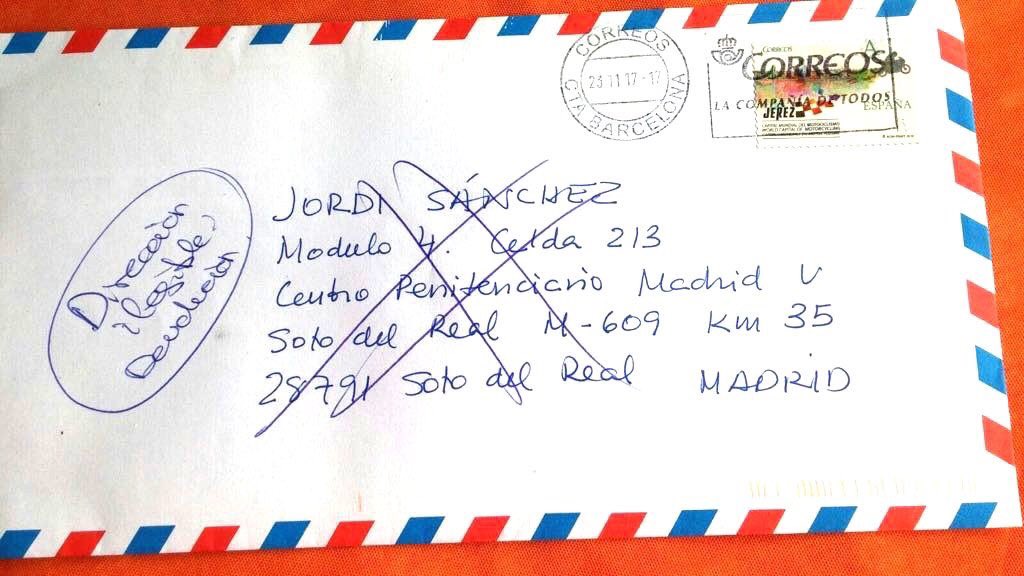 CORREOS
23 11 17 - 17
CTA BARCELONA
CORREOS
LA COMPAÑIA DE TODOS
Correos
A
ESPAÑA
JEREZ
CAPITAL MUNDIAL DEL MOTOCICLISMO
WORLD CAPITAL OF MOTORCYCLING
Dirección
ilegible,
Devolución
JORDI SÁNCHEZ
Modulo 4. Celda 213
Centro Penitenciario Madrid V
Soto del Real M-609 Km 35
28791 Soto del Real MADRID